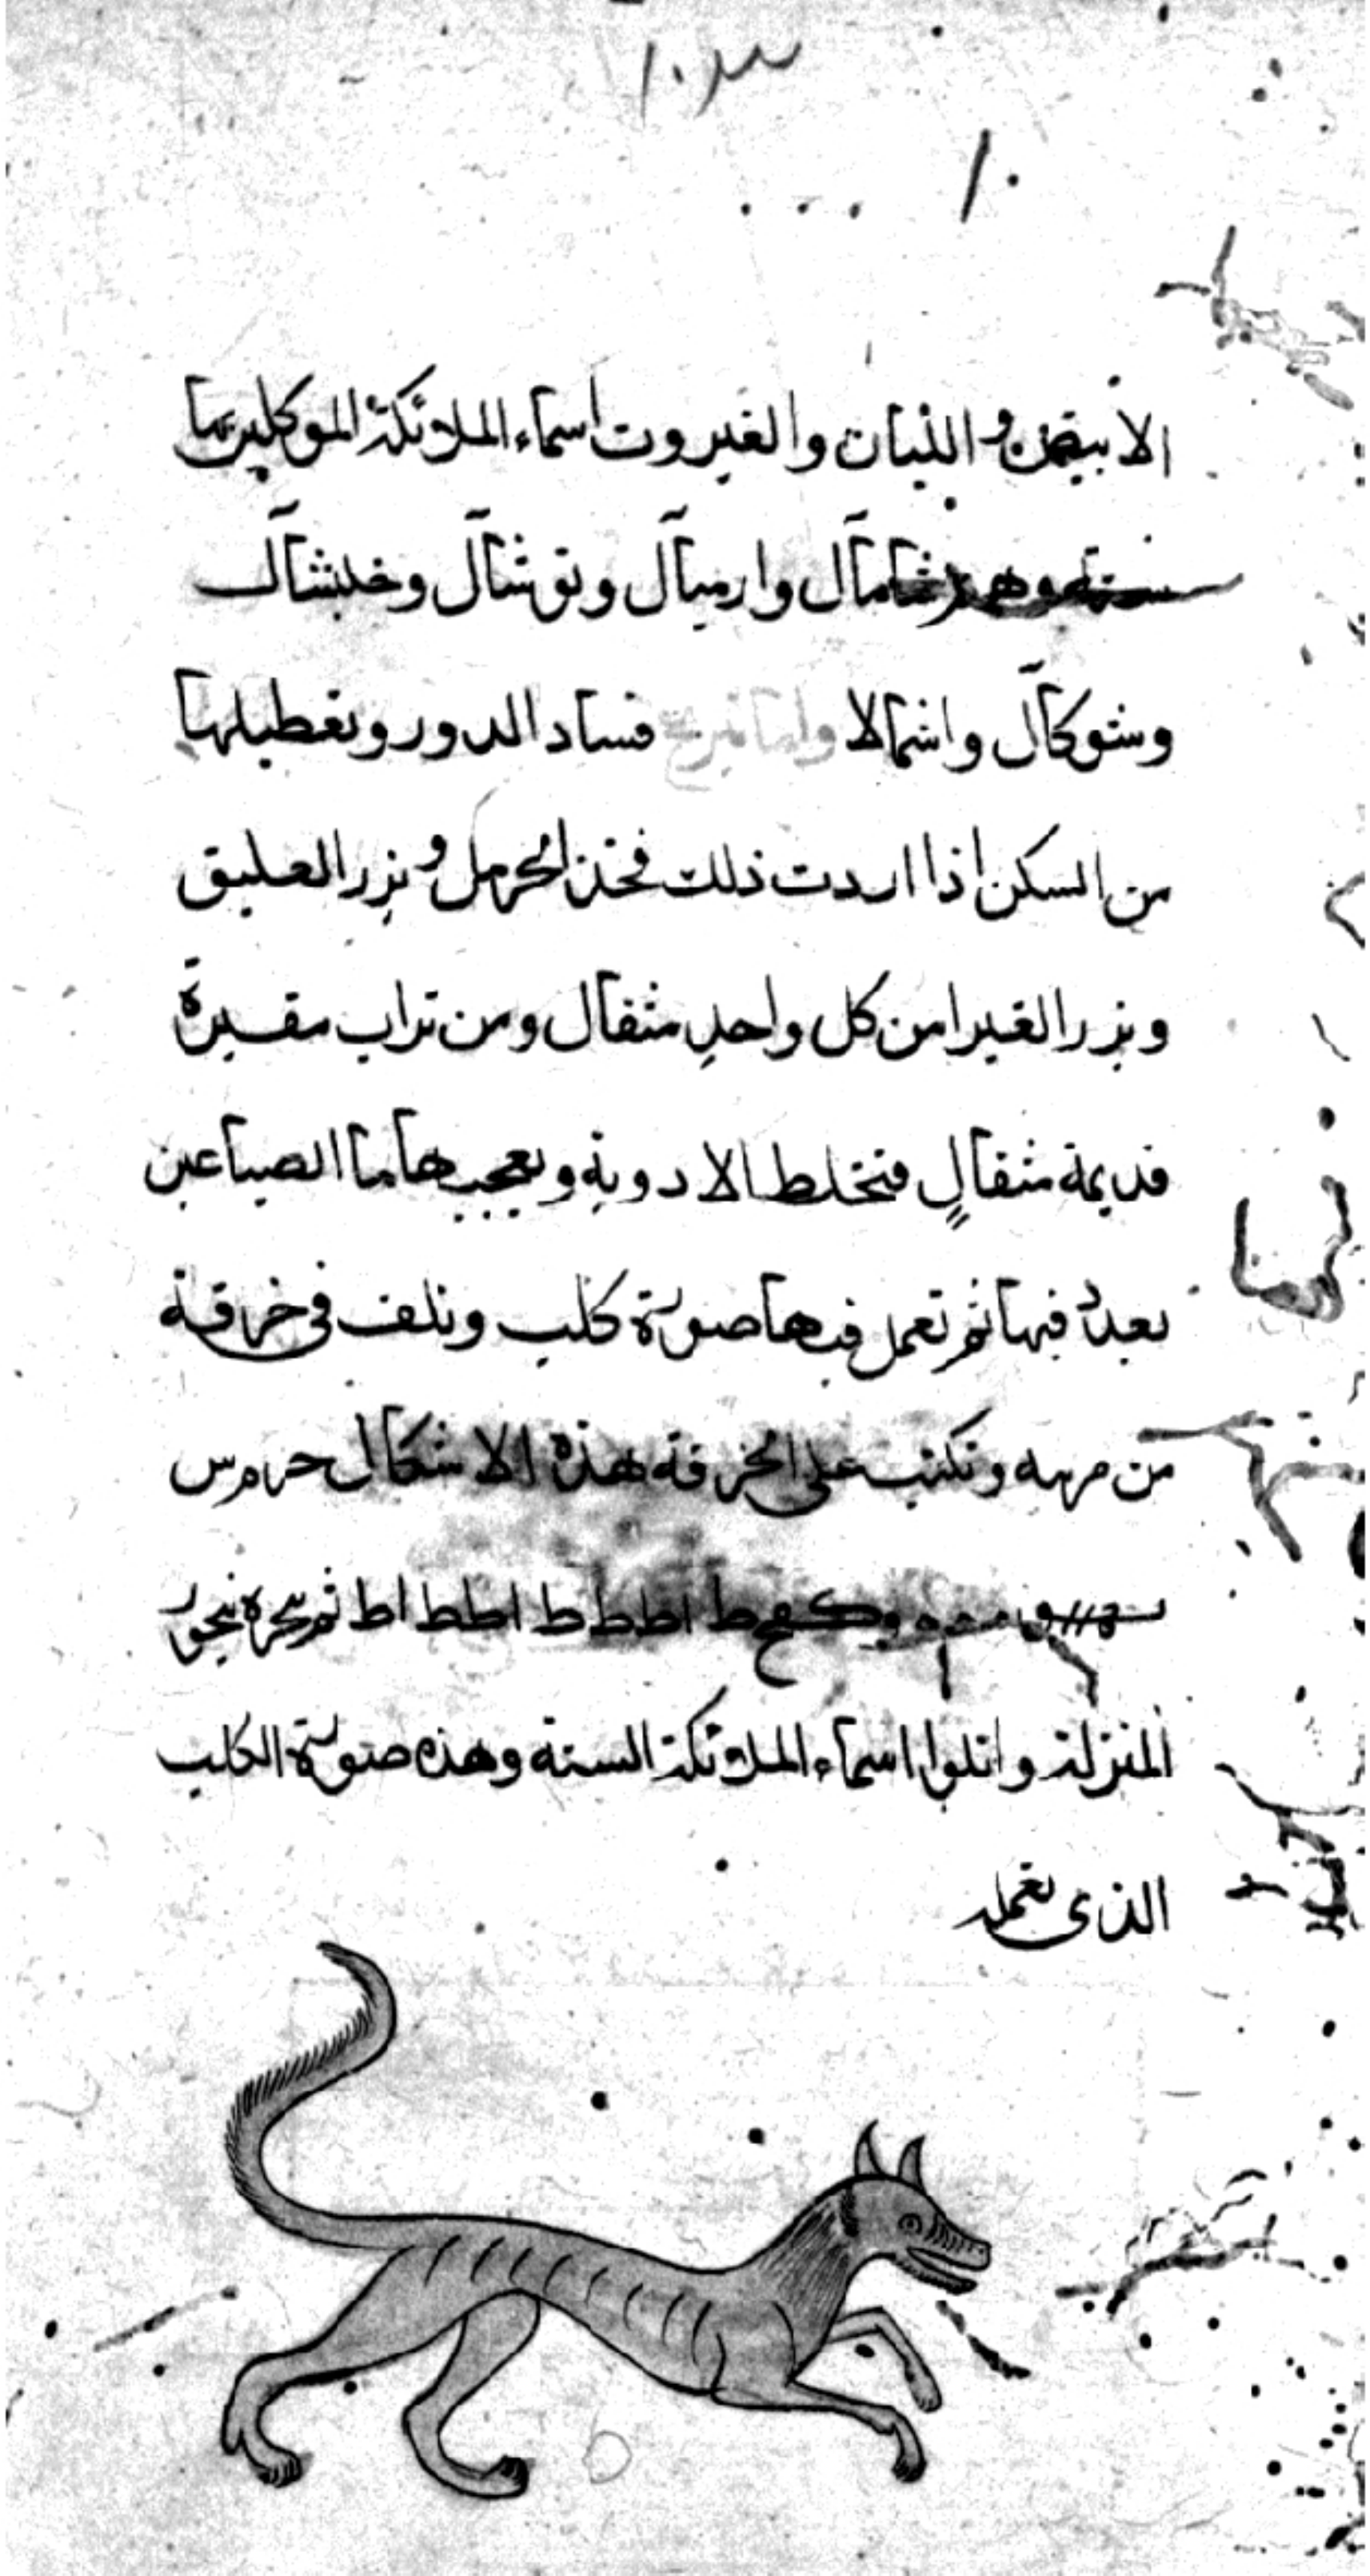 الابيض و اللبان والغيروت اسماء الملائكة الموكلين بها
ستة وهم شامآل وارميآل ونوشآل وخلبشآل
وشوكآل واشمالا فساد الدور وتعطيلها
من السكن اذا اردت ذلك فخذ الحرمل و بزر العليق
وبزر الغبيرا من كل واحدٍ مثقال ومن تراب مقبرة
قديمة مثقالٍ فتخلط الادوية وتعجبها ما الصباعين
فيها ثم تعمل فيها صورة كلب وتلف فى خرقة
من وتكتب على الخرقة هذه الاشكال
ط اططط ط اطط اط ثم بخره بخور
المنزلة واتلوا اسماء الملائكة الستة وهذه صورة الكلب
الذى تعمله